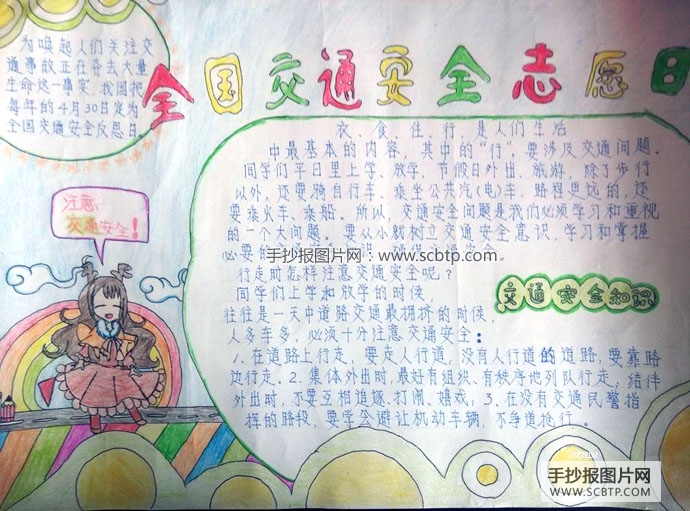 为唤起人们关注交
通事故正在夺去大量
生命这一事实,我国把
每年的4月30日定为
全国交通安全反思日.
全国交通安全志愿日
注意、
交通安全!
衣、食、住、行,是人们生活
中最基本的内容,其中的“行”,要涉及交通问题。
同学们平日里上学、放学,节假日外出、旅游,除了步行
以外,还要骑自行车、乘坐公共汽(电)车,路程更远的,还
要乘火车、乘船。所以,交通安全问题是我们必须学习和重视
的一个大问题。要从小就树立交通安全意识,学习和掌握
必要的
手抄报图片网 - www.scbtp.com
行走时怎样注意交通安全呢?
同学们上学和放学的时候,
往往是一天中道路交通最拥挤的时候,
人多车多,必须十分注意交通安全:
1、在道路上行走,要走人行道,没有人行道的道路,要靠路
边行走。2、集体外出时,最好有组织、有秩序地列队行走;结伴
外出时,不要互相追逐、打闹、嬉戏;3、在没有交通民警指
挥的路段,要学会避让机动车辆,不争道抢行。
交通安全知识
手抄报图片网
WWW.SCBTP.COM